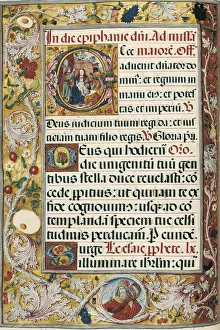 In die epiphanie dñi. Ad missã
Ece maiorẽ. Off.
advenit dñator do
minus: et regnum in
manu eius: et potes
tas et imperiũ. V
Deus iudicium tuum regi da: et ius
ticiam tuam filio regis. V Gloria pri.
Eus qui hodierna Oro.
die unigenitũ tuũ gen
tibus stella duce revelasti: con
cede propitius: ut qui iam te ex
fide cognovimus: usque ad con
templandã speciem tue celsi
tudinis perducamur. P eundẽ.
Surge Lectio Isaie prophete. lx.
illuminare ihrlm: qui